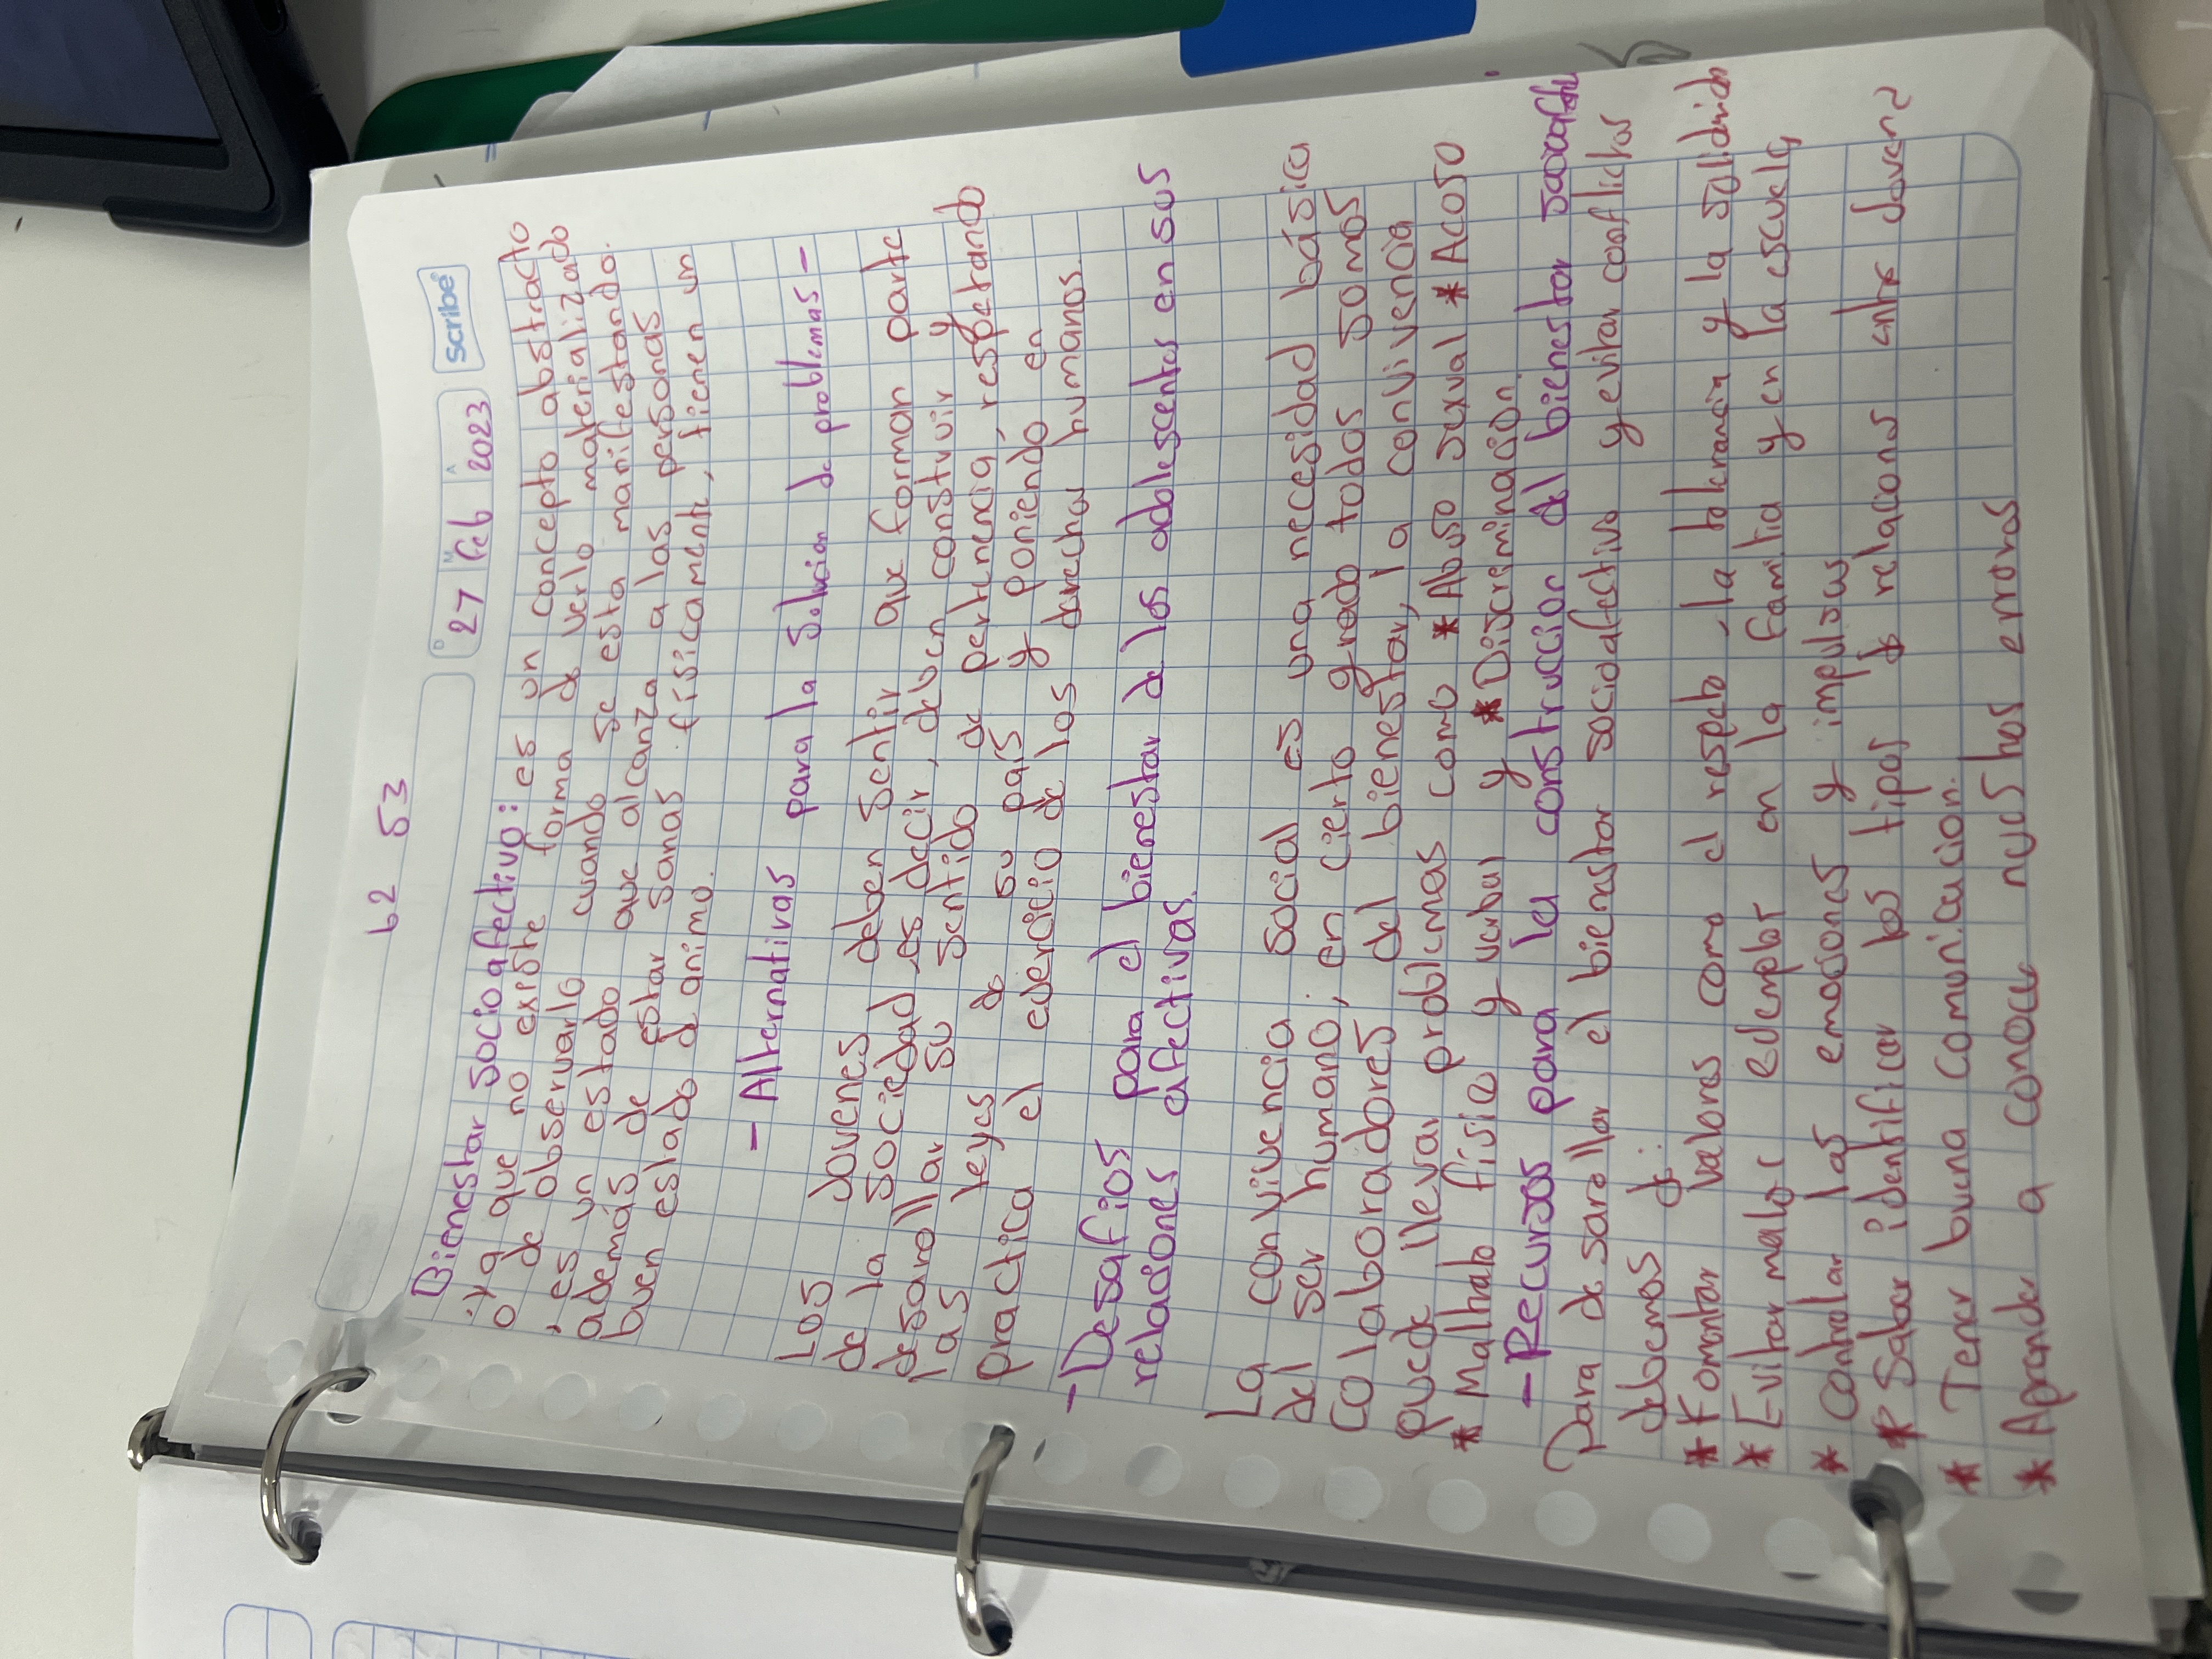 b2 53
D M A
27 Feb 2023 scribe
Bienestar socioafectivo: es un concepto abstracto
ya que no existe forma de verlo materializado
o de observarlo cuando se esta manifestando.
es un estado que alcanza a las personas
además de estar sanas físicamente, tienen un
buen estado de animo.
- Alternativas para la solucion de problemas -
Los Jovenes deben sentir que forman parte
de la sociedad, es decir, deben construir y
desarrollar su sentido de pertenencia, respetando
las leyes de su país y poniendo en
practica el ejercicio de los derechos humanos.
- Desafios para el bienestar de los adolescentes en sus
relaciones afectivas.
La convivencia social es una necesidad básica
del ser humano; en cierto grado todos somos
colaboradores del bienestar, la convivencia
puede llevar problemas como * Abuso sexual * Acoso
* Maltrato físico y verbal y * Discriminación.
- Recursos para la construccion del bienestar
Para desarollar el bienestar socioafectivo y evitar conflictos
debemos de:
* Fomentar valores como el respeto, la tolerancia y la
* Evitar malos ejemplos en la familia y en la escuela
* Controlar las emociones y impulsos
* Saber identificar los tipos de relaciones entre Jovenes
* Tener buena comunicacion.
* Aprender a conocer nuestros errores